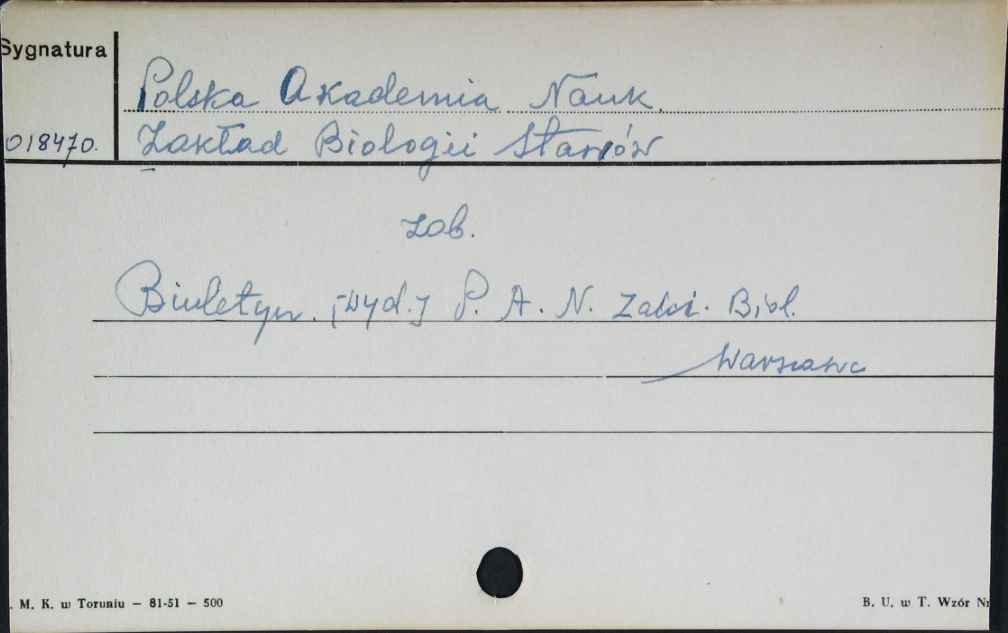 Sygnatura
Polska Akademia Nauk.
018470. Zakład Biologii Stawów
Zob.
Biuletyn. [wyd.] P. A. N. Zakł. Biol.
Warszawa
. M. K. w Toruniu — 81-51 — 500
B. U. w T. Wzór Nr